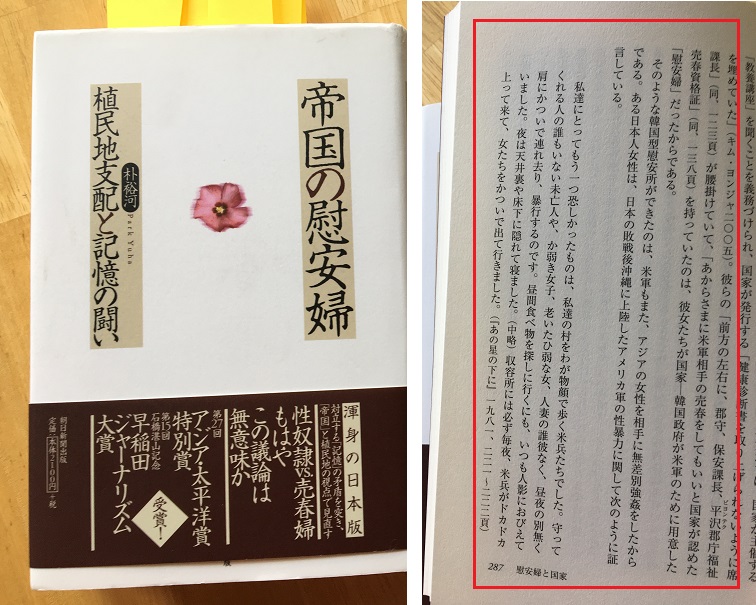 帝国の慰安婦
植民地支配と記憶の闘い
朴裕河
Park Yuha
渾身の日本版
対立する「記憶」の矛盾を突き、
「帝国」と植民地の視点で見直す
性奴隷vs売春婦
もはや
この議論は
無意味か
第27回
アジア・太平洋賞
特別賞
第15回
石橋湛山記念
早稲田
ジャーナリズム
大賞
受賞!
朝日新聞出版
定価[本体2100円]+税
「教養講座」を開くことを義務づけられ、国家が発行する「健康診断書を
を埋めていた」(キム・ヨンジャ二〇〇五)。彼らの「前方の左右に、郡守、保安課長、平沢郡庁福祉
ピョンテク
課長」(同、一二三頁)が腰掛けていて、「あからさまに米軍相手の売春をしてもいいと国家が認めた
売春資格証」(同、一三八頁)を持っていたのは、彼女たちが国家―韓国政府が米軍のために用意した
「慰安婦」だったからである。
そのような韓国型慰安所ができたのは、米軍もまた、アジアの女性を相手に無差別強姦をしたから
である。ある日本人女性は、日本の敗戦後沖縄に上陸したアメリカ軍の性暴力に関して次のように証
言している。
私達にとってもう一つ恐しかったものは、私達の村をわが物顔で歩く米兵たちでした。守って
くれる人の誰もいない未亡人や、か弱き女子、老いたひ弱な女、人妻の誰彼なく、昼夜の別無く
肩にかついで連れ去り、暴行するのです。昼間食べ物を探しに行くにも、いつも人影におびえて
いました。夜は天井裏や床下に隠れて寝ました。(中略)収容所には必ず毎夜、米兵がドカドカ
上って来て、女たちをかついで出て行きました。(『あの星の下に』一九八一、二二一~二二二頁)
287 慰安婦と国家